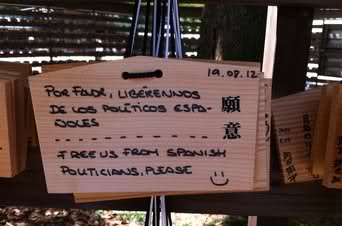 19.08.12
POR FAVOR, LIBÉRENNOS
DE LOS POLÍTICOS ESPA-
ÑOLES
願意
FREE US FROM SPANISH
POLITICIANS, PLEASE